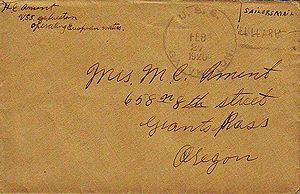 H.C. Ament
USS. Galveston
Operating European waters.
U.S.S.
FEB
27
1920
GALVESTON
SAILORS MAIL
Mrs. M.C. Ament
658 n 8th street
Grants Pass
Oregon